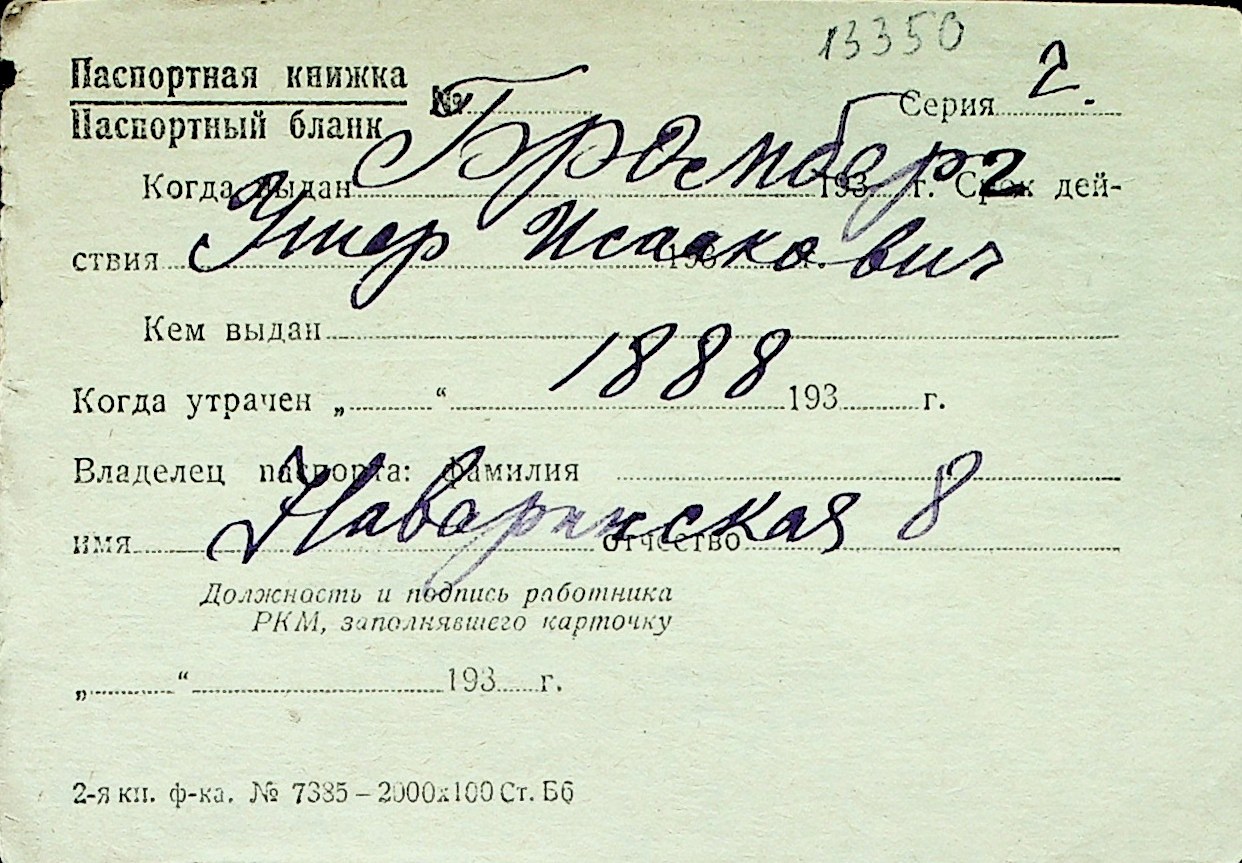 13350
Паспортная книжка
Паспортный бланк № Серия 2.
Бромберг
Когда выдан 193 г. Срок дей-
Ушер Исаакович
ствия 193 г.
Кем выдан
1888
Когда утрачен „ “ 193 г.
Владелец паспорта: фамилия
Наваринская 8
имя отчество
Должность и подпись работника
РКМ, заполнявшего карточку
„ “ 193 г.
2-я кн. ф-ка. № 7385 – 2000х100 Ст. Б6